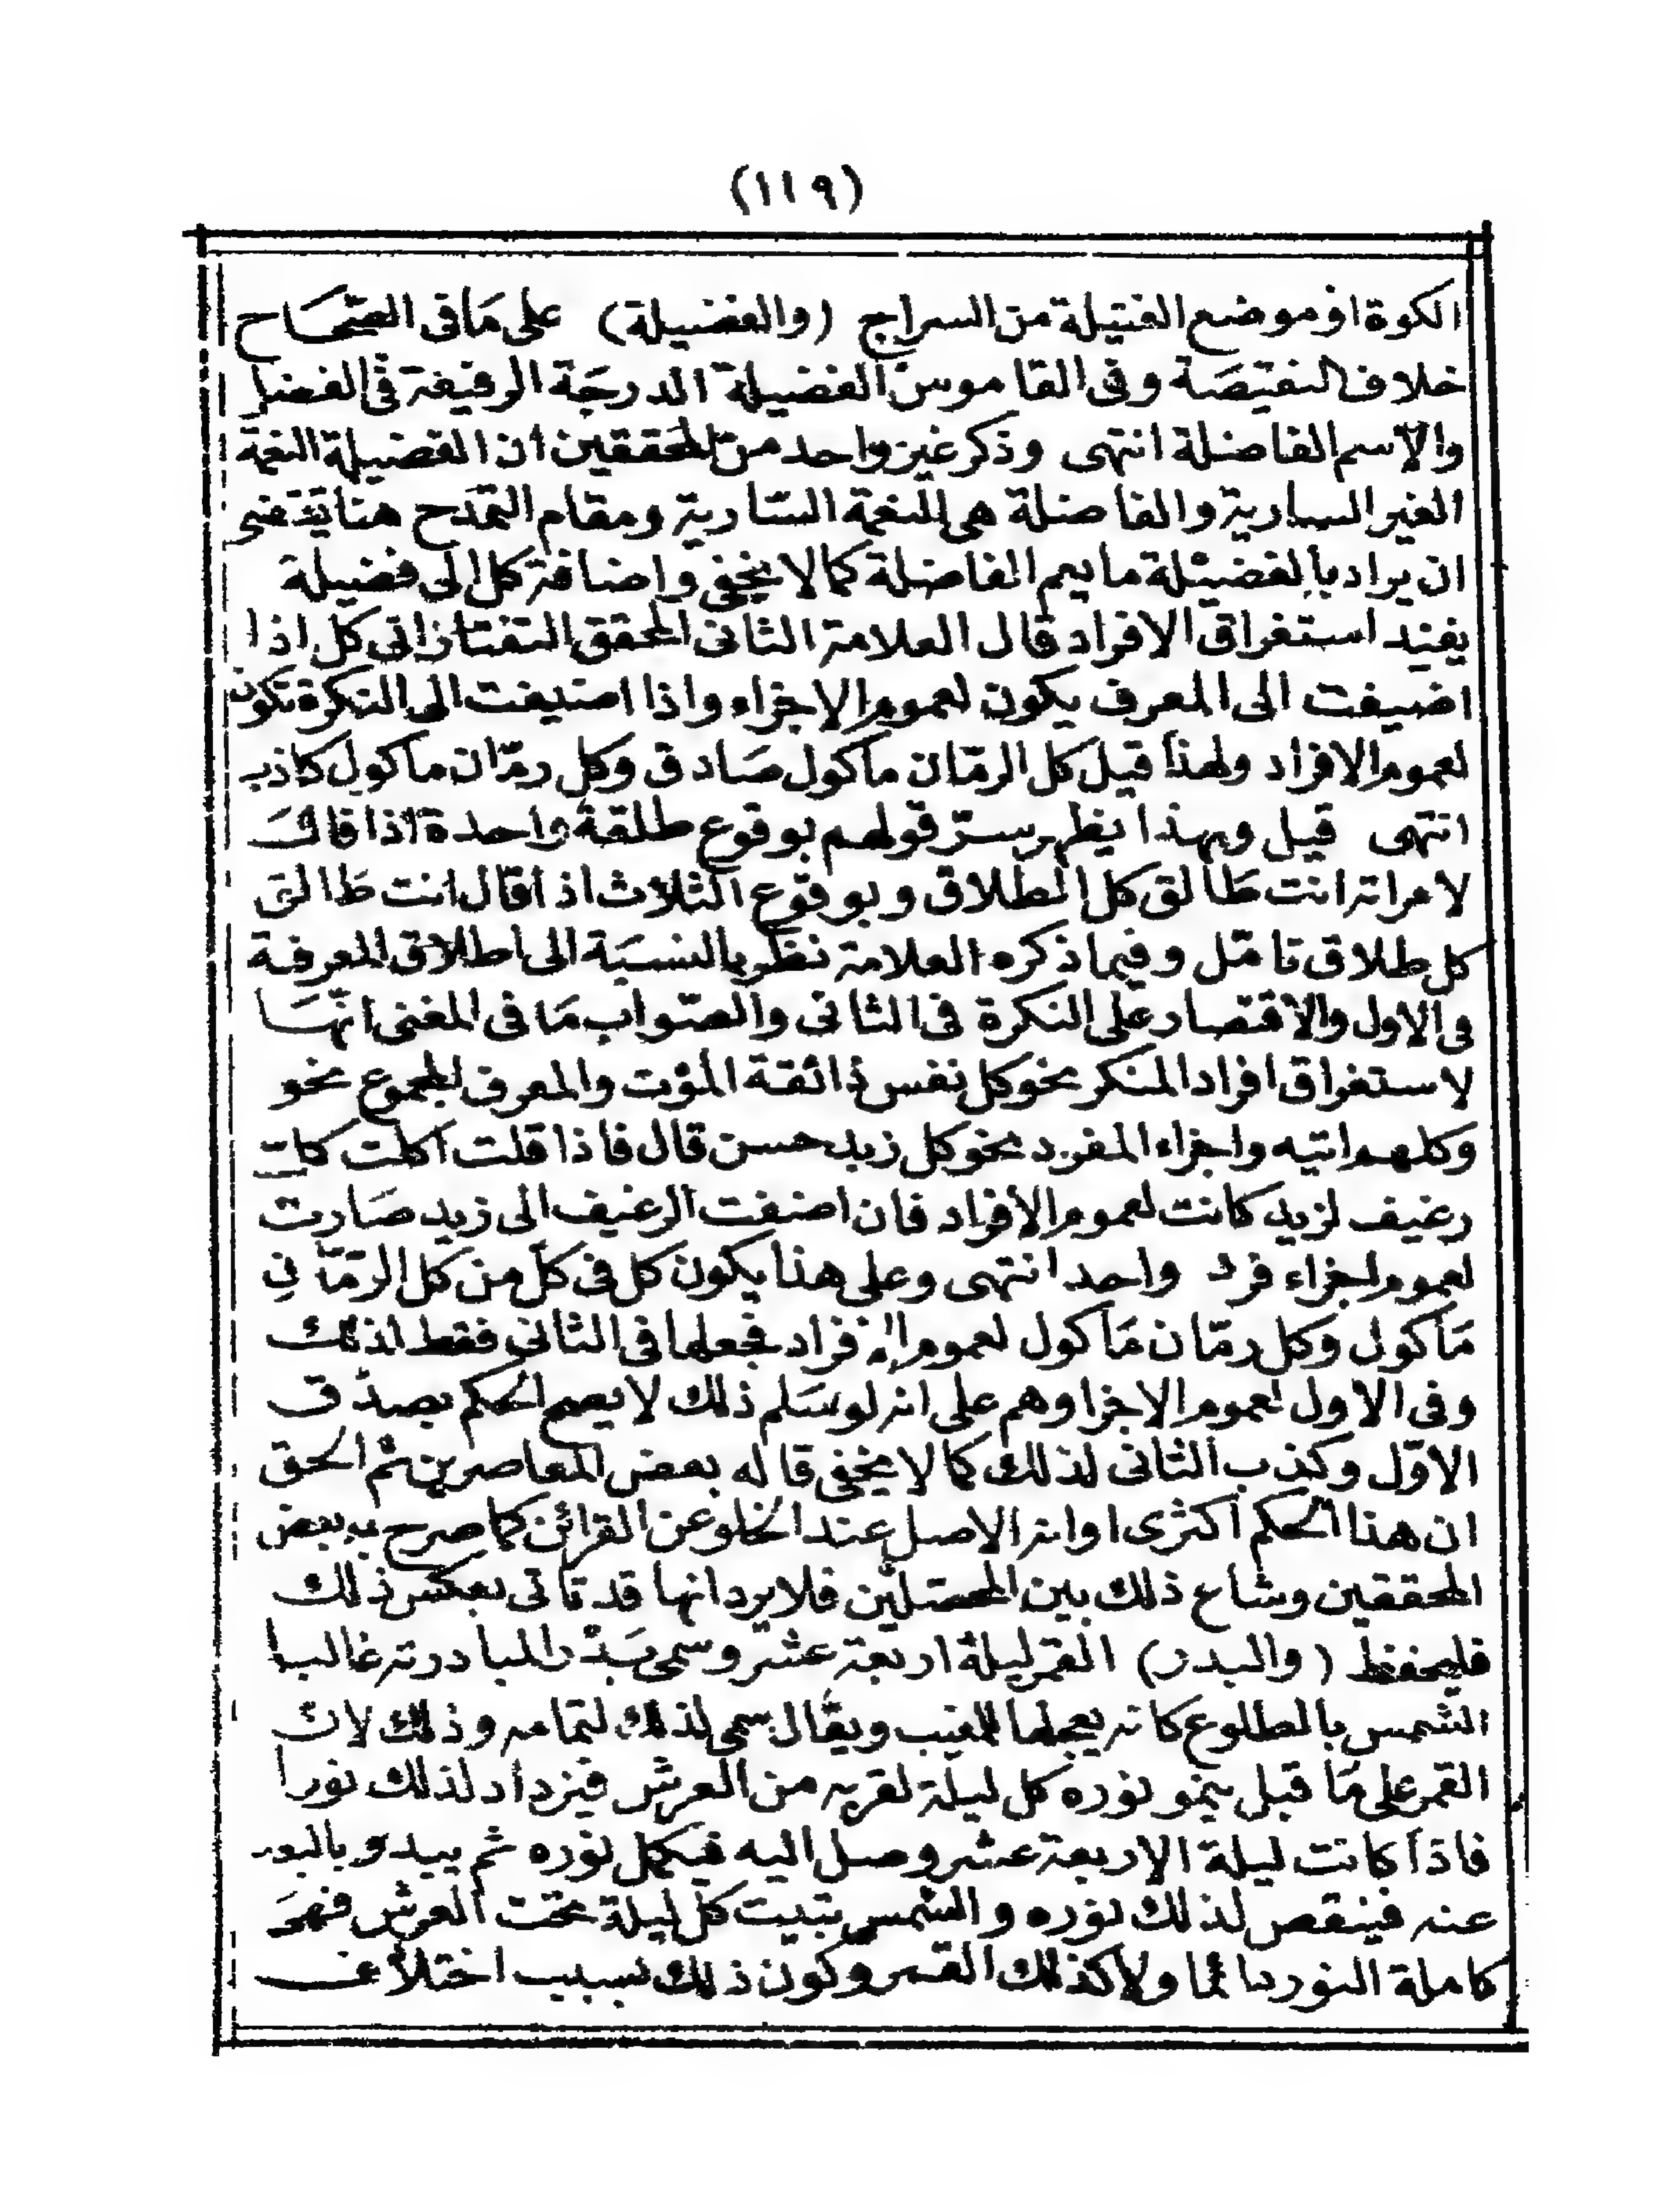 (١١٩)
الكوة او موضع الفتيلة من السراج (والفضيلة) على مَا فى الصّحَاح
خلاف النقيصَة وفى القاموس الفضيلة الدرجَة الرفيعة فى الفضل
والاسم الفاضلة انتهى وذكر غير واحد من المحققين ان الفضيلة النعمة
الغير السارية والفاضلة هى النعمة السّارية ومقام التمدّح هنا يقتضى
ان يراد بالفضيلة ما يعم الفاضلة كما لا يخفى واضافة كل الى فضيلة
يفيد استغراق الافراد قال العلامة الثانى المحقق التفتازانى كل اذا
اضيفت الى المعرف يكون لعموم الاجزاء واذا اضيفت الى النكرة تكون
لعموم الافراد ولهذا قيل كل الرمّان مأكول صَادق وكل رمّان مأكول كاذب
انتهى قيل وبهذا يظهر سرّ قولهم بوقوع طلقة واحدة اذا قال
لامراته انت طَالق كل الطلاق وبوقوع الثلاث اذا قال انت طَالق
كل طلاق تامّل وفيما ذكره العلامة نظر بالنسبَة الى اطلاق المعرفة
فى الاول والاقتصار على النكرة فى الثانى والصّواب مَا فى المغنى انّهَا
لاستغراق افراد المنكر نحو كل نفس ذائقة المؤت والمعرف المجموع نحو
وكلهم اتيه واجزاء المفرد نحو كل زيد حسن قال فاذا قلت اكلت كل
رغيف لزيد كانت لعموم الافراد فان اضفت الرغيف الى زيد صَارت
لعموم اجزاء فرد واحد انتهى وعلى هذا يكون كل فى كلّ من كل الرمّان
مَأكول وكل رمّان مَأكول لعموم الافراد فجعلها فى الثانى فقط لذلك
وفى الاول لعموم الاجزا وهم على انه لو سَلم ذلك لا يعم الحكم بصدق
الاوّل وكذب الثانى لذلك كما لا يخفى قاله بعض المعاصرين ثم الحق
ان هذا الحكم اكثرى او انه الاصل عند الخلو عن القرائن كما صرح به بعض
المحققين وشاع ذلك بين المحصّلين فلا يرد انها قد تاتى بعكس ذلك
فليحفظ (والبدر) القمر ليلة اربعة عشر وسمى بَدْرا لمبادرته غالبا
الشمس بالطلوع كانه يعجلها المغيب ويقال سمى لذلك لتمامه وذلك لان
القمر على مَا قيل ينمو نوره كل ليلة لقربه من العرش فيزداد لذلك نورا
فاذا كانت ليلة الاربعة عشر وصل اليه فيكمل نوره ثم يبدو بالبعد
عنه فينقص لذلك نوره والشمس تبيت كل ليلة تحت العرش فهىَ
كاملة النور دائما ولا كذلك القمر وكون ذلك بسبب اختلاف